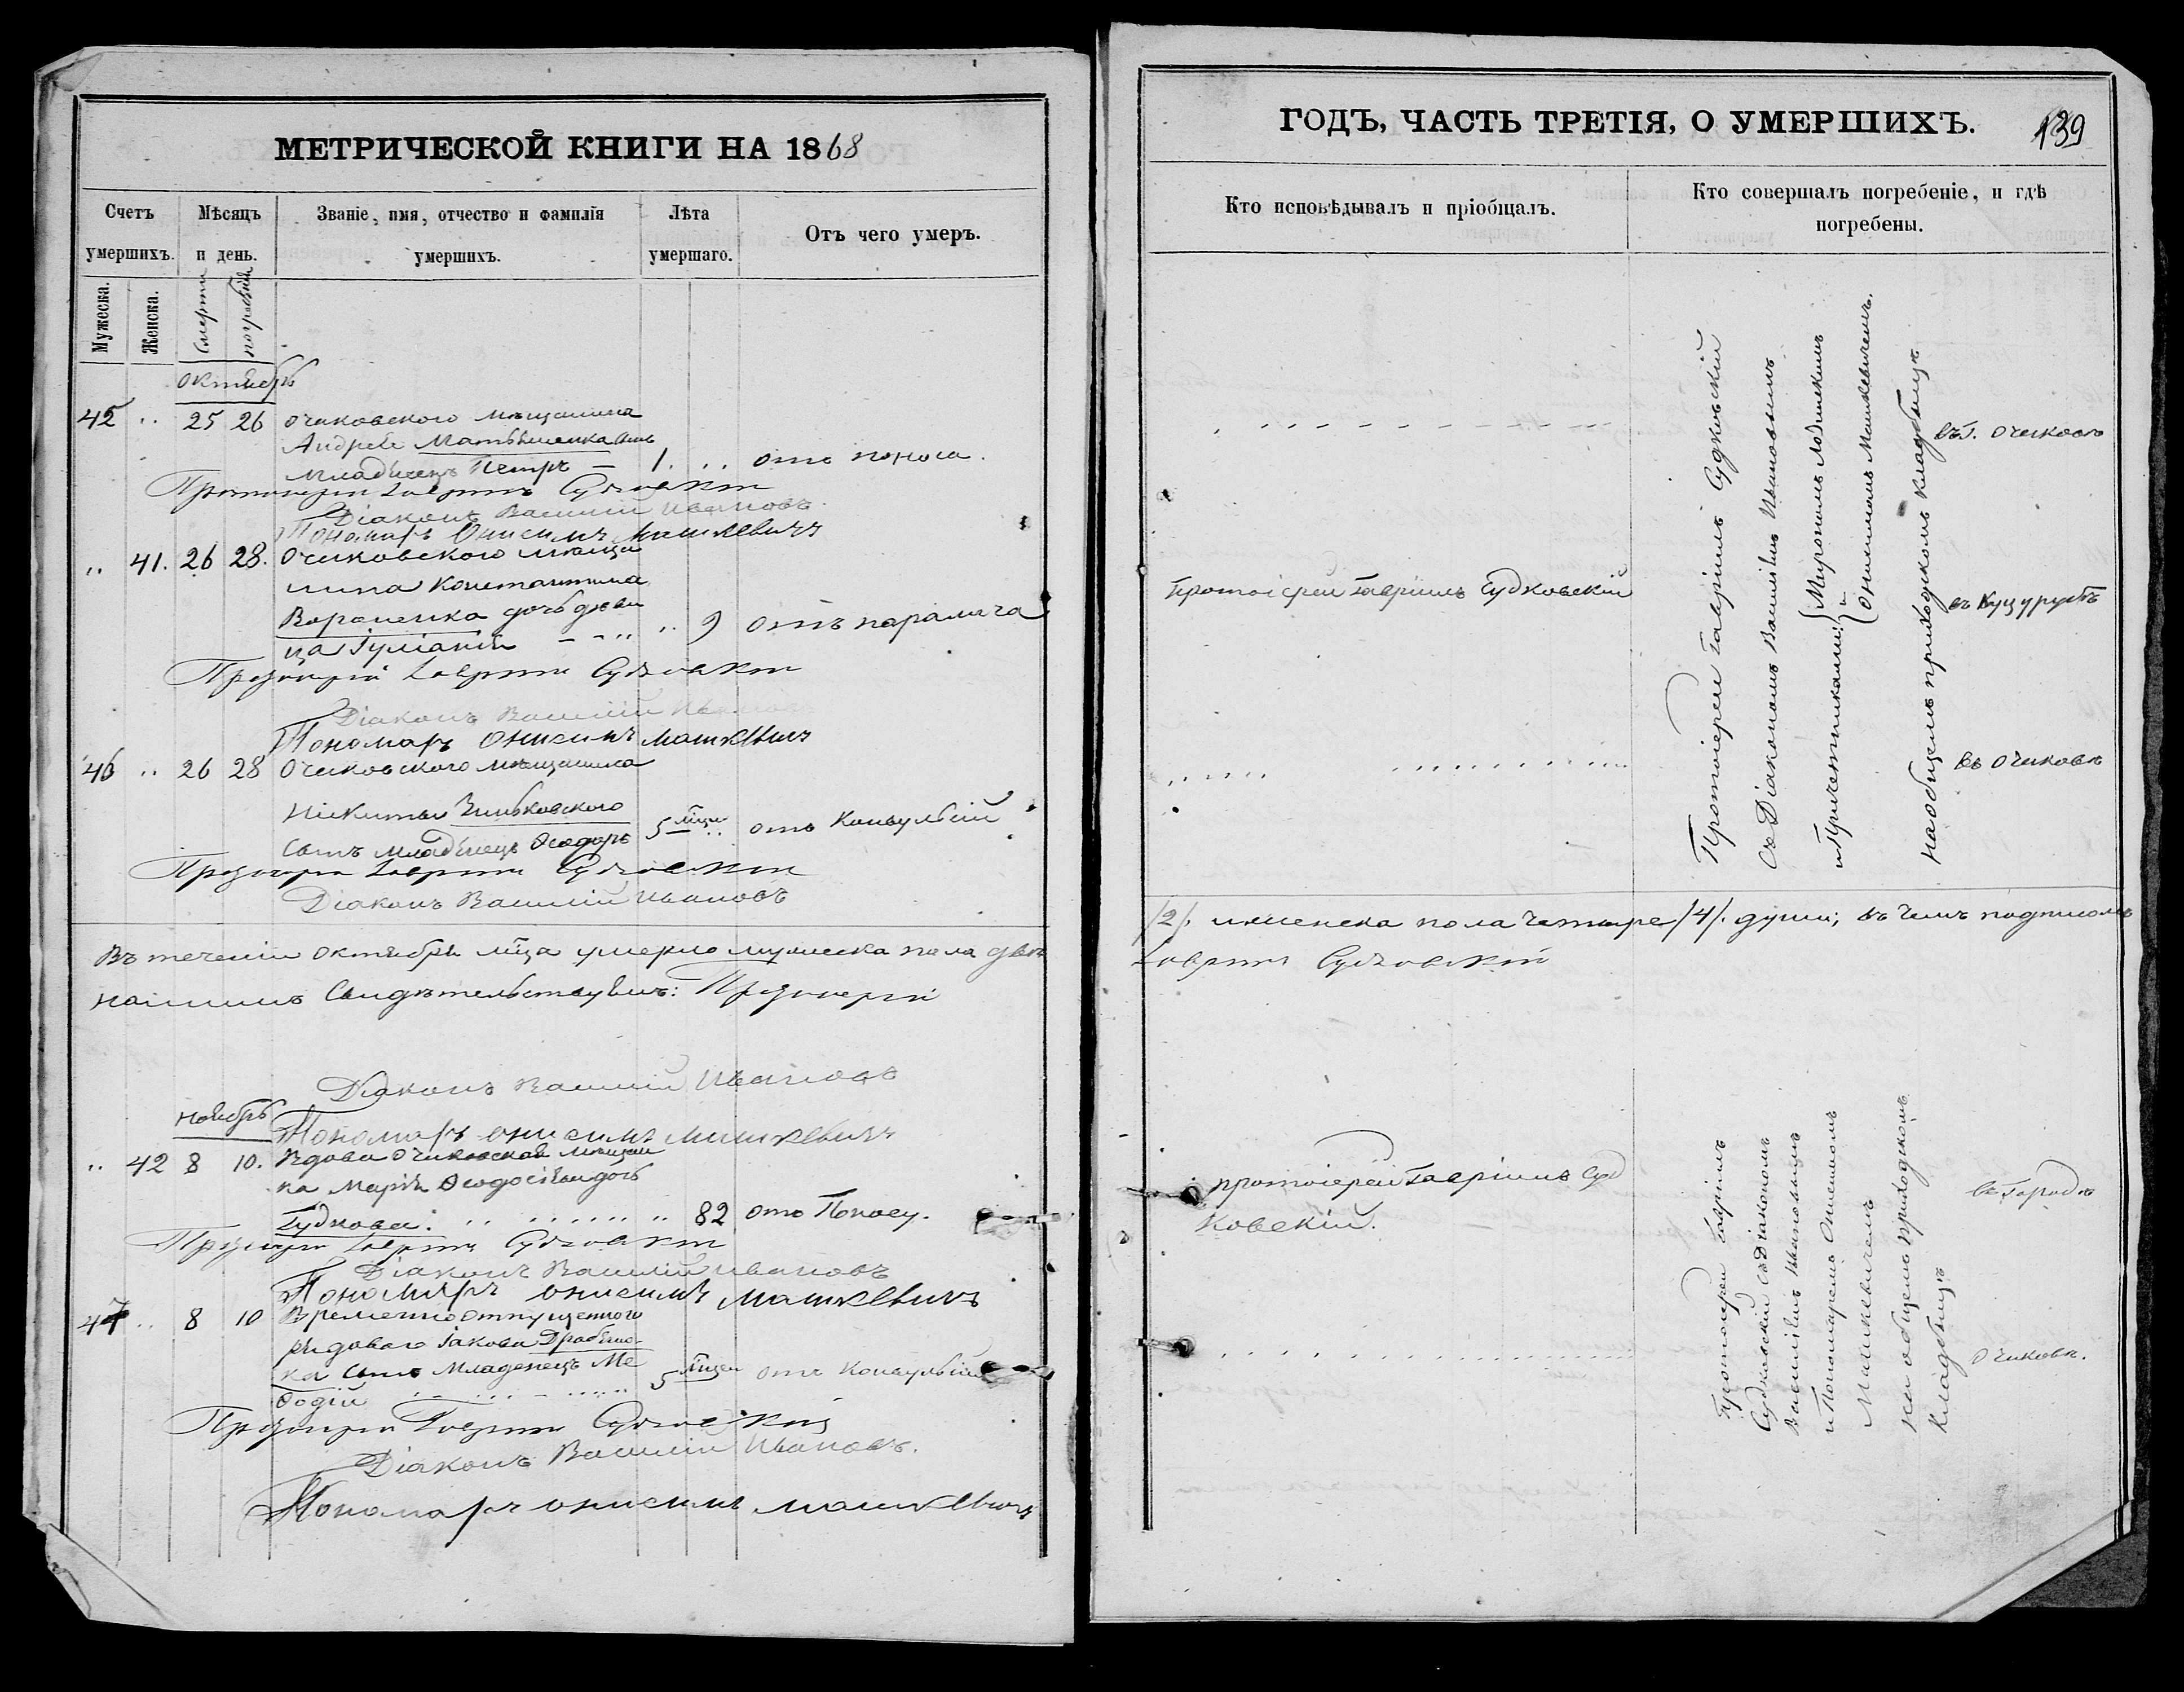 МЕТРИЧЕСКОЙ КНИГИ НА 1868
Счетъ умершихъ.
Мѣсяцъ и день.
Званіе, имя, отчество и фамилія умершихъ.
Лѣта умершаго.
Отъ чего умеръ.
Мужеска.
Женска.
Смерти
погребенія
октябрь
45 .. 25 26 Очаковского мѣщанина
Андрея Матвѣенка сынъ
младенецъ Петръ — 1. .. отъ поноса.
Протоіерей Гавріилъ Судковскій
Діаконъ Василій Ивановъ
Пономарь Онисимъ Машкевичъ
.. 41. 26 28. Очаковского мѣща
нина Константина
Вороненка дочь дѣви
ца Іуліанія - - .. .. 9 отъ паралича
Протоіерей Гавріилъ Судковскій
Діаконъ Василій Ивановъ
Пономарь Онисимъ Машкевичъ
46 .. 26 28 Очаковского мѣщанина
Никиты
сынъ младенецъ Ѳеодоръ 5 мѣсяц .. отъ Конвульсій
Протоіерей Гавріилъ Судковскій
Діаконъ Василій Ивановъ
Въ теченіи октября мца умерло мужеска пола два
нашимъ свидѣтельствуемъ: Протоіерей
Діаконъ Василій Ивановъ
ноябрь
Пономарь Онисимъ Машкевичъ
.. 42 8 10. Вдова Очаковская мѣщан
ка Марія Ѳеодосіева дочь
Гудкова. .. .. 82 отъ Поносу.
Протоіерей Гавріилъ Судковскій
Діаконъ Василій Ивановъ
Пономарь Онисимъ Машкевичъ
47 .. 8 10 Временно отпущенного
рядоваго Іакова
ка сынъ младенецъ Ме
ѳодій 5 мѣсяц отъ Конвульсій
Протоіерей Гавріилъ Судковскій
Діаконъ Василій Ивановъ.
Пономарь Онисимъ Машкевичъ
ГОДЪ, ЧАСТЬ ТРЕТІЯ, О УМЕРШИХЪ.
139
Кто исповѣдывалъ и пріобщалъ.
Кто совершалъ погребеніе, и гдѣ погребены.
Протоіерей Гавріилъ Судковскій
Протоіерей Гавріилъ Судковскій
съ Діакономъ Василіемъ Ивановымъ
и Причетниками:
Мирономъ
и Онисимомъ Машкевичемъ.
на общемъ приходскомъ кладбищѣ
въ г. Очаковѣ
въ Куцурубѣ
въ Очаковѣ
/2/. и женска пола четыре /4/. души; въ чемъ подписомъ
Гавріилъ Судковскій
Протоіерей Гавріилъ Суд
ковскій.
Протоіерей Гавріилъ
Судковскій съ Діакономъ
Василіемъ Ивановымъ
и Пономаремъ Онисимомъ
Машкевичемъ
на общемъ приходскомъ
кладбищѣ
въ городѣ
Очаковѣ.